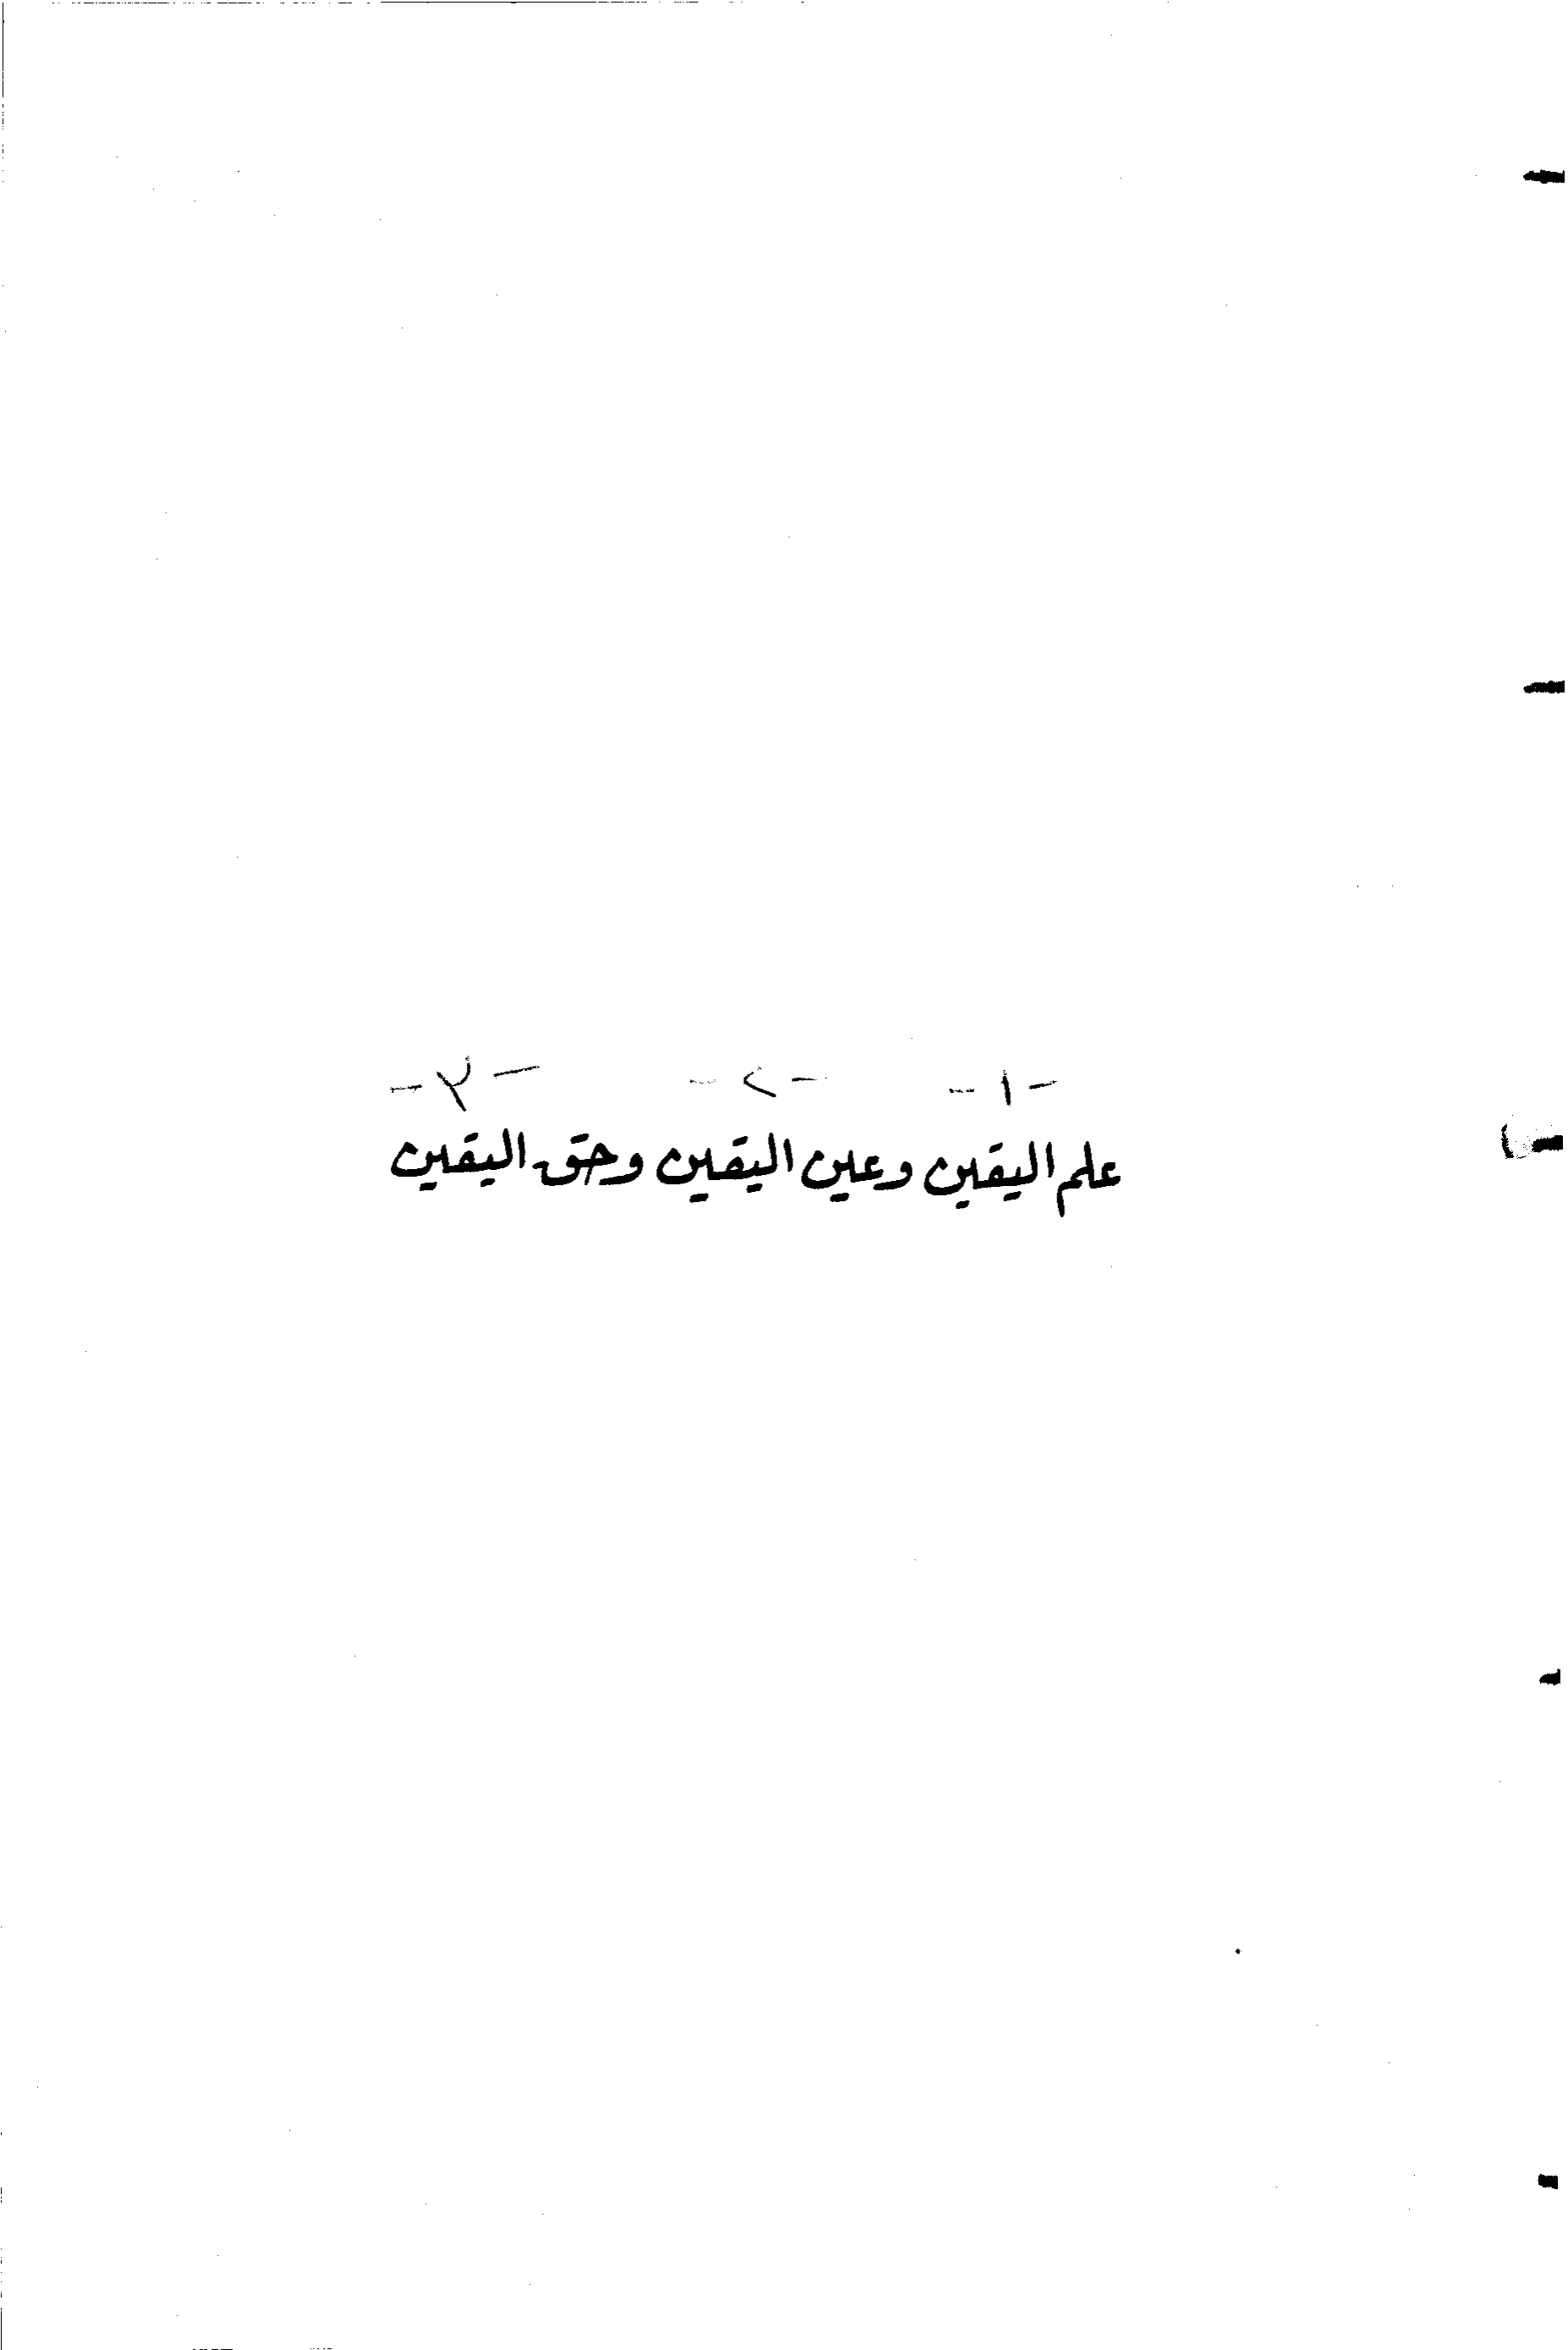 -١- -٢- -٣-
علم اليقين وعين اليقين وحق اليقين